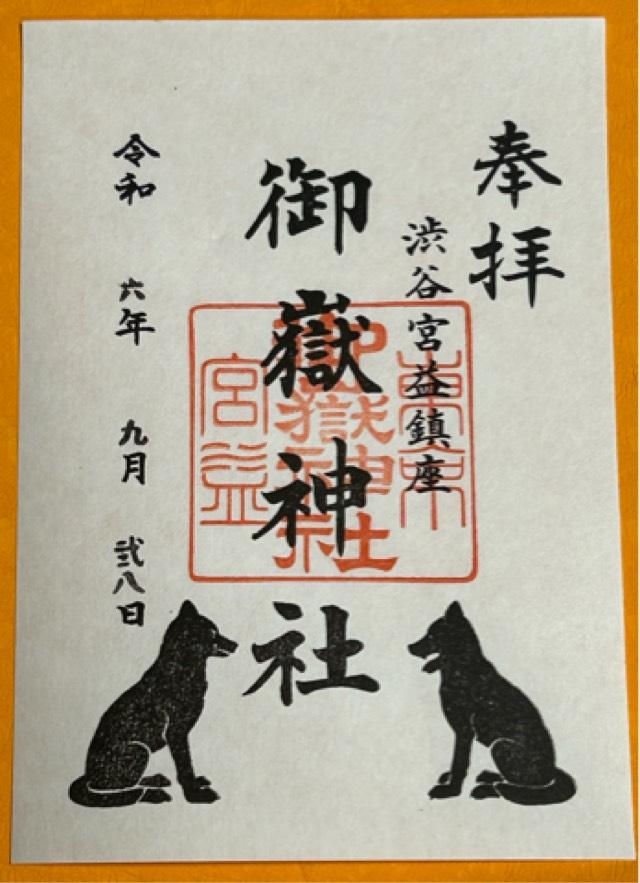 奉拝
渋谷宮益鎮座
御嶽神社
令和 六年 九月 弐八日
東京
御嶽神社
宮益